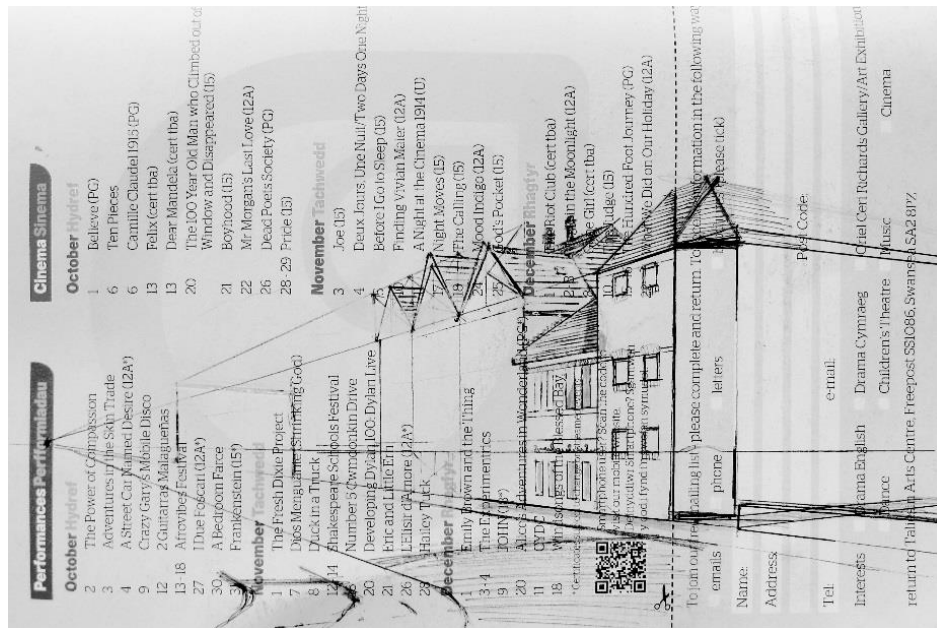 Performances Perfformiadau
October Hydref
2 The Power of Compassion
3 Adventures in the Skin Trade
4 A Street Car Named Desire (12A*)
9 Crazy Gary's Mobile Disco
12 2 Guitarras Malagueñas
13-18 Afrovibes Festival
27 I Due Foscari (12A*)
30 A Bedroom Farce
Frankenstein (15*)
November Tachwedd
1 The Fresh Dixie Project
7 Dios Menguante (Shrinking God)
8 Duck in a Truck
12-14 Shakespeare Schools Festival
Number 5 Cwmdonkin Drive
20 Developing Dylan 100: Dylan Live
21 Eric and Little Ern
26 L'Elisir d'Amore (12A*)
28 Hailey Tuck
December Rhagfyr
1 Emily Brown and the Thing
3-4 The Experimentrics
9 JOHN (18*)
20 Alice's Adventures in Wonderland (PG*)
11 CYDC
18 Whirlsongs of the Blessed Bay
Cinema Sinema
October Hydref
1 Believe (PG)
6 Ten Pieces
6 Camille Claudel 1915 (PG)
13 Felix (cert tba)
13 Dear Mandela (cert tba)
20 The 100 Year Old Man who Climbed out of
Window and Disappeared (15)
21 Boyhood (15)
22 Mr Morgan's Last Love (12A)
26 Dead Poets Society (PG)
28-29 Pride (15)
November Tachwedd
3 Joe (15)
4 Deux Jours, Une Nuit/Two Days One Night
Before I Go to Sleep (15)
10 Finding Vivian Maier (12A)
A Night at the Cinema 1914 (U)
17 Night Moves (15)
18 The Calling (15)
24 Mood Indigo (12A)
25 God's Pocket (15)
December Rhagfyr
1 The Riot Club (cert tba)
in the Moonlight (12A)
Girl (cert tba)
10 Judge (15)
Hundred Foot Journey (PG)
What We Did on Our Holiday (12A)
Smartphone user? Scan the code to
visit our mobile website.
To join our free mailing list - please complete and return. To information in the following way
(please tick)
emails phone letters
Name:
Address:
Post Code:
Tel: e-mail:
Interests Drama English Drama Cymraeg Oriel Ceri Richards Gallery/Art Exhibition
Dance Children's Theatre Music Cinema
return to Taliesin Arts Centre, Freepost SS1086, Swansea, SA2 8PZ